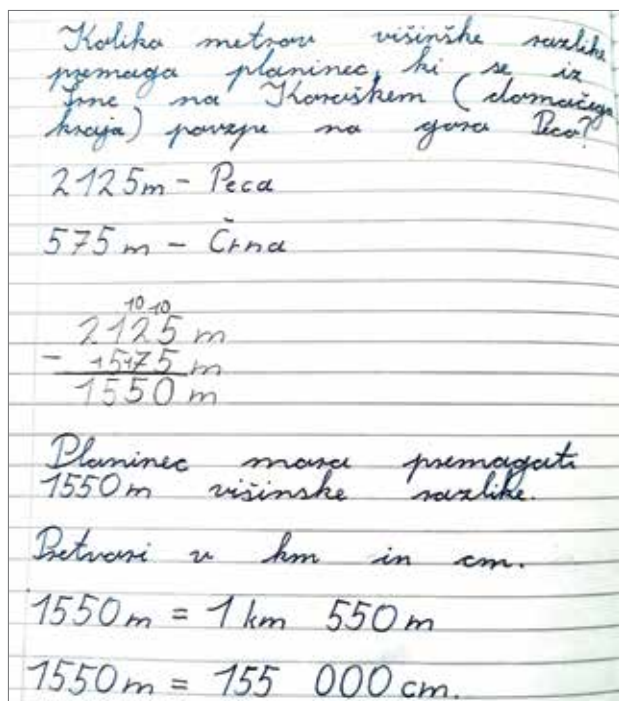 Kolika metrov višinške razlike
premaga planinec, ki se iz
Črne na Koroškem (domačega
kraja) povzpe na goro Peco?
2125m - Peca
575 m - Črna
10 10
2125 m
- 15175 m
1550 m
Planinec mora premagati
1550m višinske razlike.
Pretvori v km in cm.
1550m = 1 km 550 m
1550m = 155 000 cm.